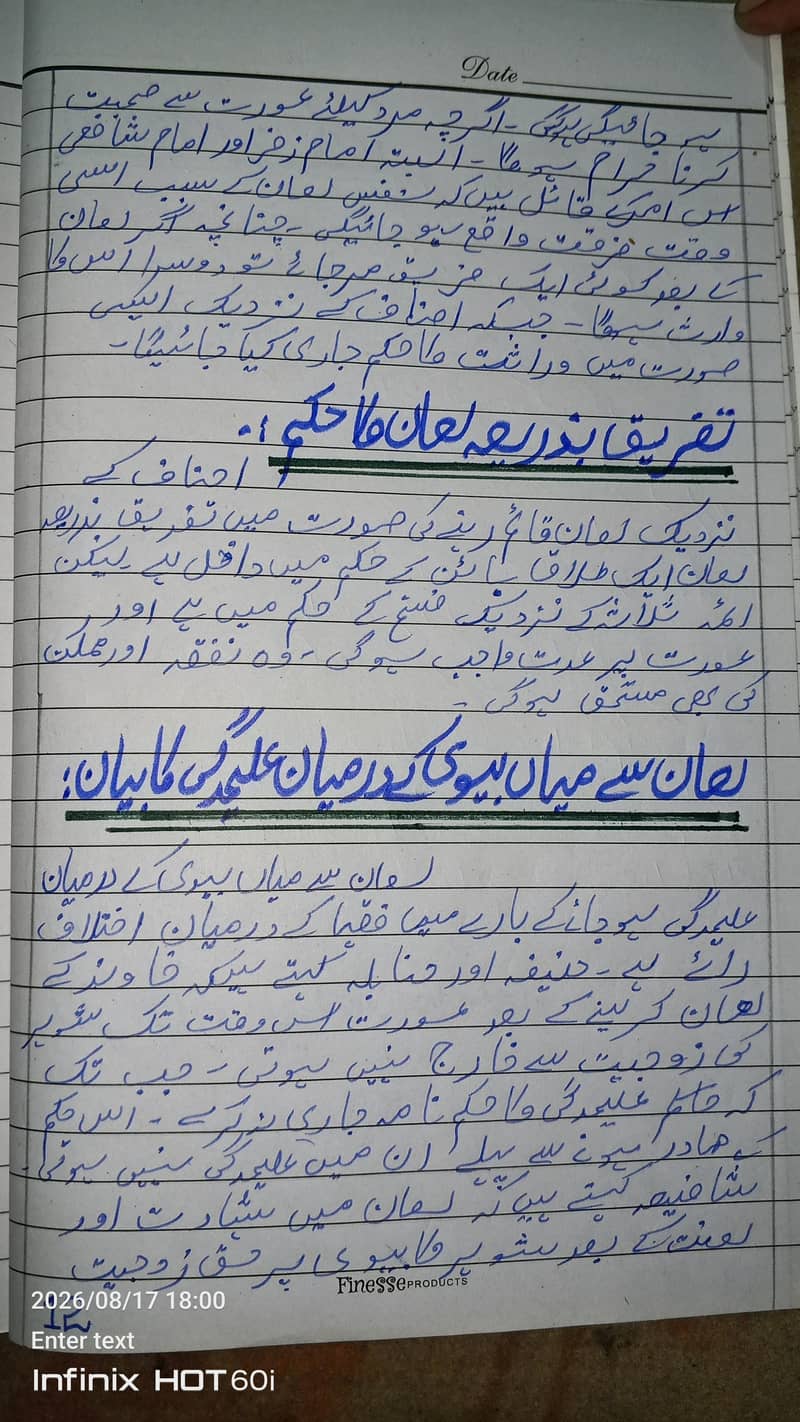 Date
ہے جائیگی ہوگی - اگرچہ مرد کیلئے عورت سے صحبت
کرنا حرام ہوگا - البتہ امام زفر اور امام شافعی
اس امر کے قائل ہیں کہ نفس لعان کے سبب اسی
وقت فرقت واقع ہو جائیگی - چنانچہ اگر لعان
کے بعد کوئی ایک فریق مرجائے تو دوسرا اس کا
وارث ہوگا - جبکہ احناف کے نزدیک ایسی
صورت میں وراثت کا حکم جاری کیا جائیگا -
تفریق بذریعہ لعان کا حکم :.
احناف کے
نزدیک لعان قائم رہنے کی صورت میں تفریق بذریعہ
لعان ایک طلاق بائن کے حکم میں داخل ہے لیکن
ائمہ ثلاثہ کے نزدیک فسخ کے حکم میں ہے اور
عورت پر عدت واجب ہوگی - وہ نفقہ اور
کی بھی مستحق ہوگی -
لعان سے میاں بیوی کے درمیان علیحدگی کا بیان :
لعان سے میاں بیوی کے درمیان
علیحدگی ہو جانے کے بارے میں فقہا کے درمیان اختلاف
رائے ہے - حنیفہ اور حنابلہ کہتے ہیں کہ خاوند کے
لعان کرلینے کے بعد عورت اس وقت تک شوہر
کی زوجیت سے خارج نہیں ہوتی - جب تک
کہ حاکم علیحدگی کا حکم نامہ جاری نہ کرے - اس حکم
کے صادر ہونے سے پہلے ان میں علیحدگی نہیں ہوتی -
شافیعہ کہتے ہیں کہ لعان میں شہادت اور
لعنت کے بعد شوہر کا بیوی پر حق زوجیت
Finesse PRODUCTS
2026/08/17 18:00
12
Enter text
Infinix HOT 60i